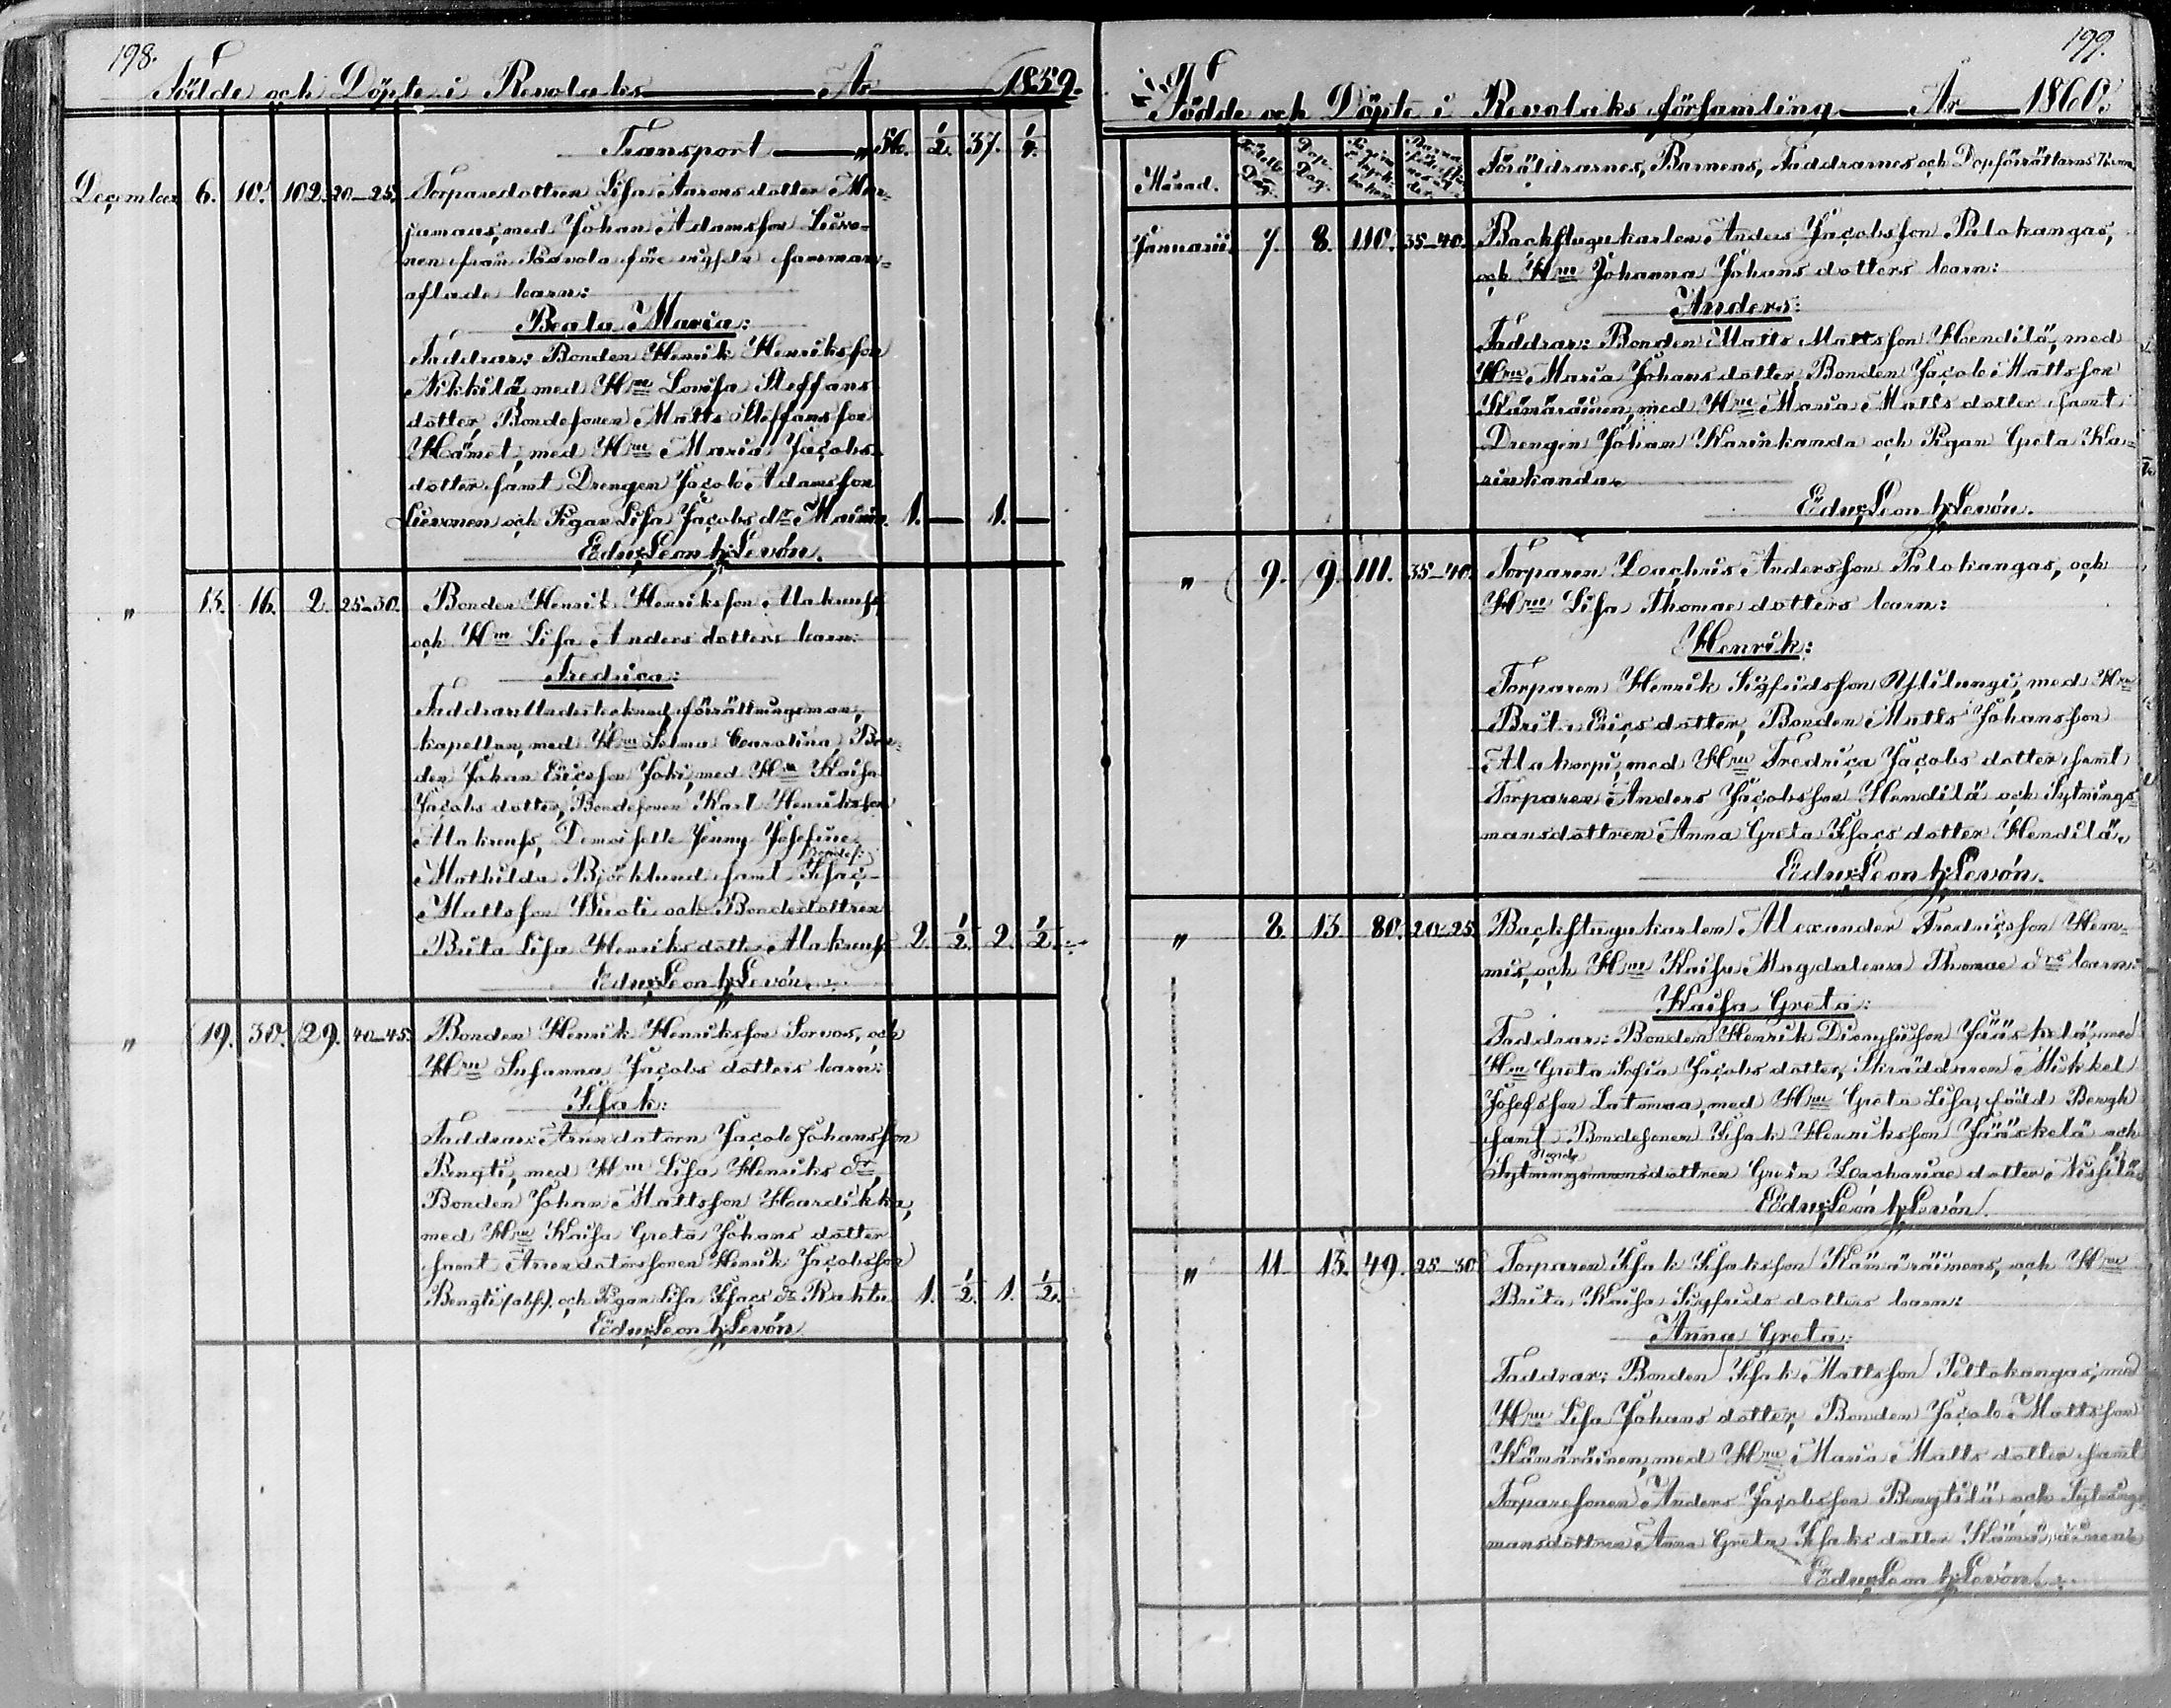 198.
Födde och Döpte i Revolaks År 1859.
Transport " 56. 1/2. 37. 1/4.
December 6. 10. 102. 20-25. Torparedottren Lisa Aarons dotter
med Johan Adamsson
från före
aflade barn:
Beata Maria:
Faddrar: Bonden Henrik Henriksson
Nikkilä, med Hru Lovisa Steffans
dotter, Bondesonen Matts Steffansson
Hämet, med Hru Maria Jacobs
dotter samt Drengen Jacob Adamsson
Lievonen och Pigan Lisa Jacobs dr 1. — 1. —
Edv: Leon h: Levón.
" 13. 16. 2. 25-30. Bonden Henrik Henriksson Alakruuss
och Hru Lisa Anders dotters barn:
Fredrica:
Faddrar: Undertecknad förrättningsman,
kapellan, med Hru Selma Carolina, Bon-
den Johan Ericsson Joki, med Hru Kaisa
Jacobs dotter, Bondesonen Karl Henriksson
Alakruuss, Demoiselle Jenny Josefine
Bondes:
Mathilda Björklund samt Isac
Mattsson och Bondedottren
Brita Lisa Henriksdotter Alakruuss 2. 1/2. 2. 1/2.
Edv: Leon h: Levón.
" 19. 30. 29. 40-45. Bonden Henrik Henriksson Sorvos, och
Hru Susanna Jacobs dotters barn:
Isak:
Faddrar: Arrendatorn Jacob Johansson
Bengti, med Hru Lisa Henriks dr,
Bonden Johan Mattsson Hardikka,
med Hru Kaisa Greta Johans dotter
samt Arrendatorssonen Henrik Jacobsson
Bengti (abs.) och Pigan Lisa Isacs dr Rahtu 1. 1/2. 1. 1/2.
Edv: Leon h: Levón.
199.
Födde och Döpte i Revolaks församling År 1860.
Månad. Födelse Dag. Dop Dag. Föräldrarnes, Barnens, Faddrarnes och Dopförrättarens Namn
Januarii 7. 8. 110. 35-40. Backstugukarlen Anders Jacobsson Palokangas,
och Hru Johanna Johans dotters barn:
Anders:
Faddrar: Bonden Matts Mattsson Hendilä, med
Hru Maria Johans dotter, Bonden Jacob Mattsson
Kämäräinen, med Hru Maria Matts dotter samt
Drengen Johan Karinkanda och Pigan Greta Ka-
rinkanda.
Edv: Leon h: Levón.
" 9. 9. 111. 35-40. Torparen Zachris Andersson Palokangas, och
Hru Lisa Thomae dotters barn:
Henrik:
Torparen Henrik Sigfridsson med Hru
Brita Erics dotter, Bonden Matts Johansson
Alakorpi, med Hru Fredrica Jacobs dotter samt
Torparen Anders Jacobsson Hendilä och Sytnings-
mansdottren Anna Greta Isacs dotter Hendilä.
Edv: Leon h: Levón.
" 8. 13. 80. 20-25. Backstugukarlen Alexander Fredricsson Hem-
mis, och Hru Kaisa Magdalena Thomae drs barn:
Kaisa Greta:
Faddrar: Bonden Henrik Dionysiusson Jääskelä, med
Hru Greta Sofia Jacobs dotter, Skräddaren Mikkel
Josefsson Latomaa, med Hru Greta Lisa, född Bergh
samt Bondesonen Isak Henriksson Jääskelä och
Sytningsmansdottren Greta Zachariae dotter
Edv: Leon h: Levón.
" 11. 15. 49. 25-30. Torparen Isak Isaksson Kämäräinens, och Hru
Brita Kaisa Sigfrids dotters barn:
Anna Greta:
Faddrar: Bonden Isak Mattsson Peltokangas, med
Hru Lisa Johans dotter, Bonden Jacob Mattsson
Kämäräinen, med Hru Maria Matts dotter samt
Torparesonen Anders Jacobsson Bengtilä och Sytnings-
mansdottren Anna Greta Isaks dotter Kämäräinen.
Edv: Leon h: Levón.